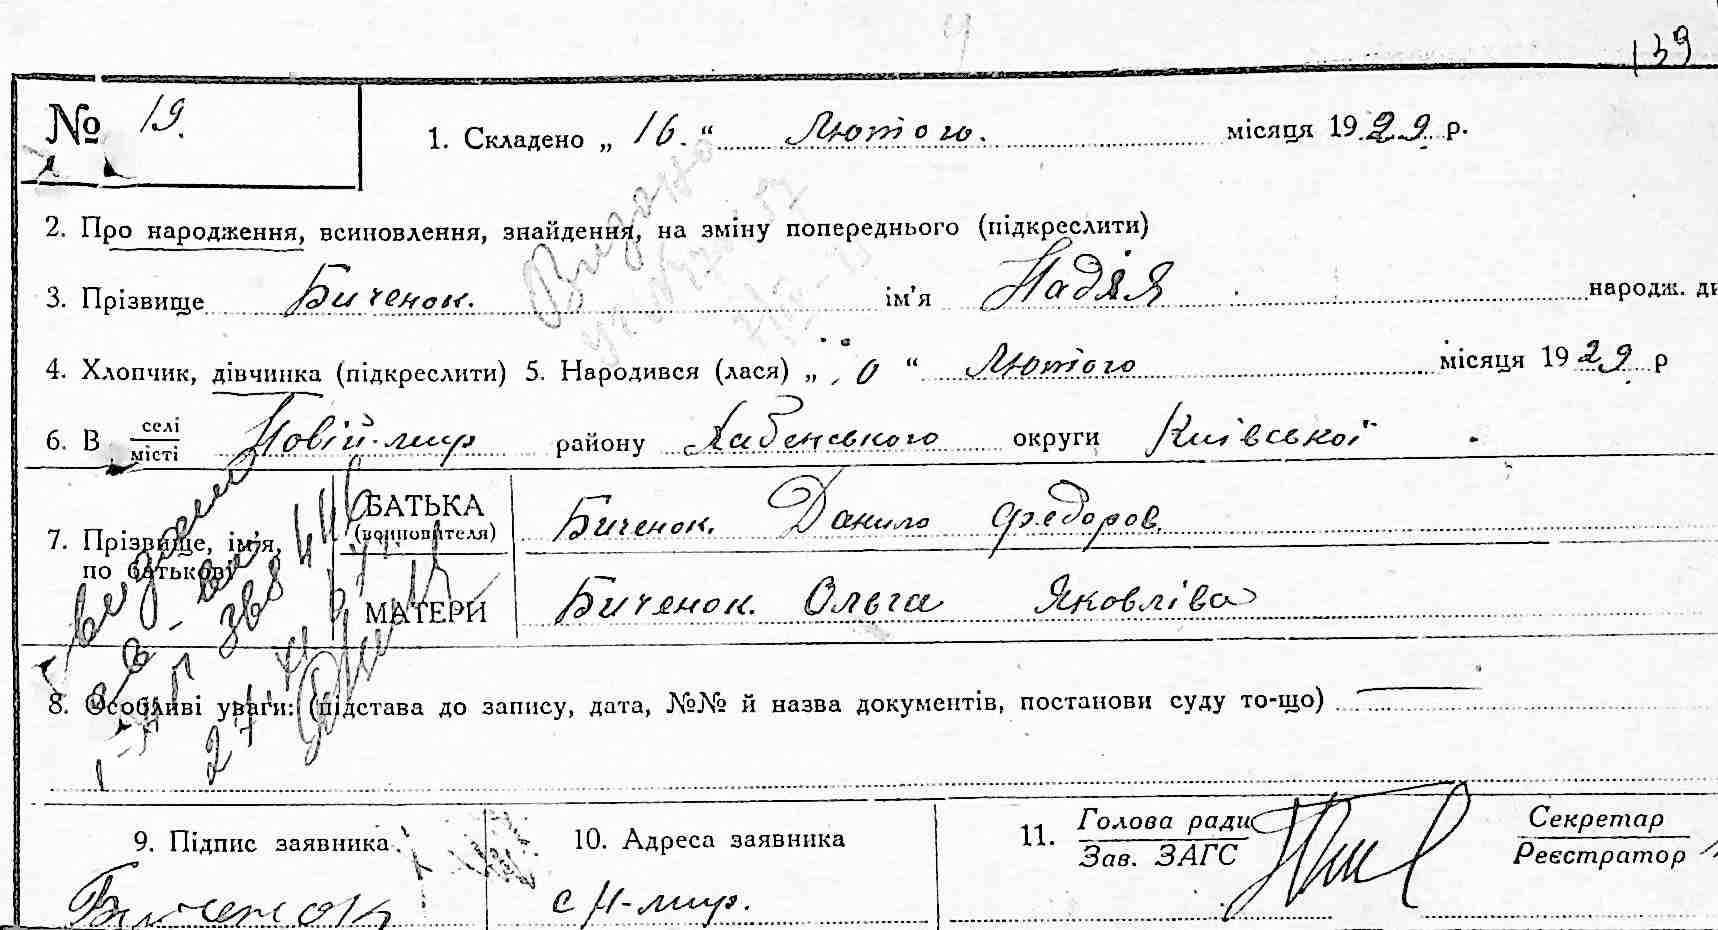 139
№ 19.
1. Складено „ 16. “ Лютого. місяця 1929 р.
2. Про народження, всиновлення, знайдення, на зміну попереднього (підкреслити)
Видано
3. Прізвище Биченок. ім'я Надія народж. ди
4. Хлопчик, дівчинка (підкреслити) 5. Народився (лася) „ “ Лютого місяця 1929 р
6. В селі/місті Новій-мир району Хабенського округи Київської
7. Прізвище, ім'я, по батькові
БАТЬКА (всиновителя) Биченок. Данило Федоров.
МАТЕРИ Биченок. Ольга Яковліва
8. Особливі уваги: (підстава до запису, дата, №№ й назва документів, постанови суду то-що)
9. Підпис заявника 10. Адреса заявника 11. Голова ради/Зав. ЗАГС Секретар/Реєстратор
Биченок с Н-мир.